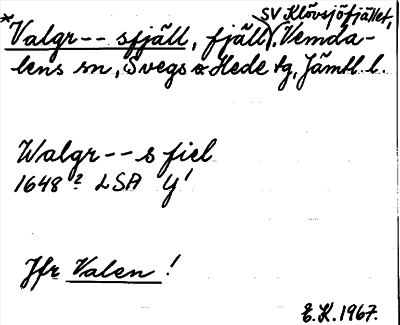 SV Klövsjöfjället,
*Valgr-- sfjäll, fjäll, Vemda-
lens sn, Svegs o Hede tg, Jämtl. l.
Walgr--s fiel
1648 2 LSA Y!
Jfr Valen!
E.K. 1967.